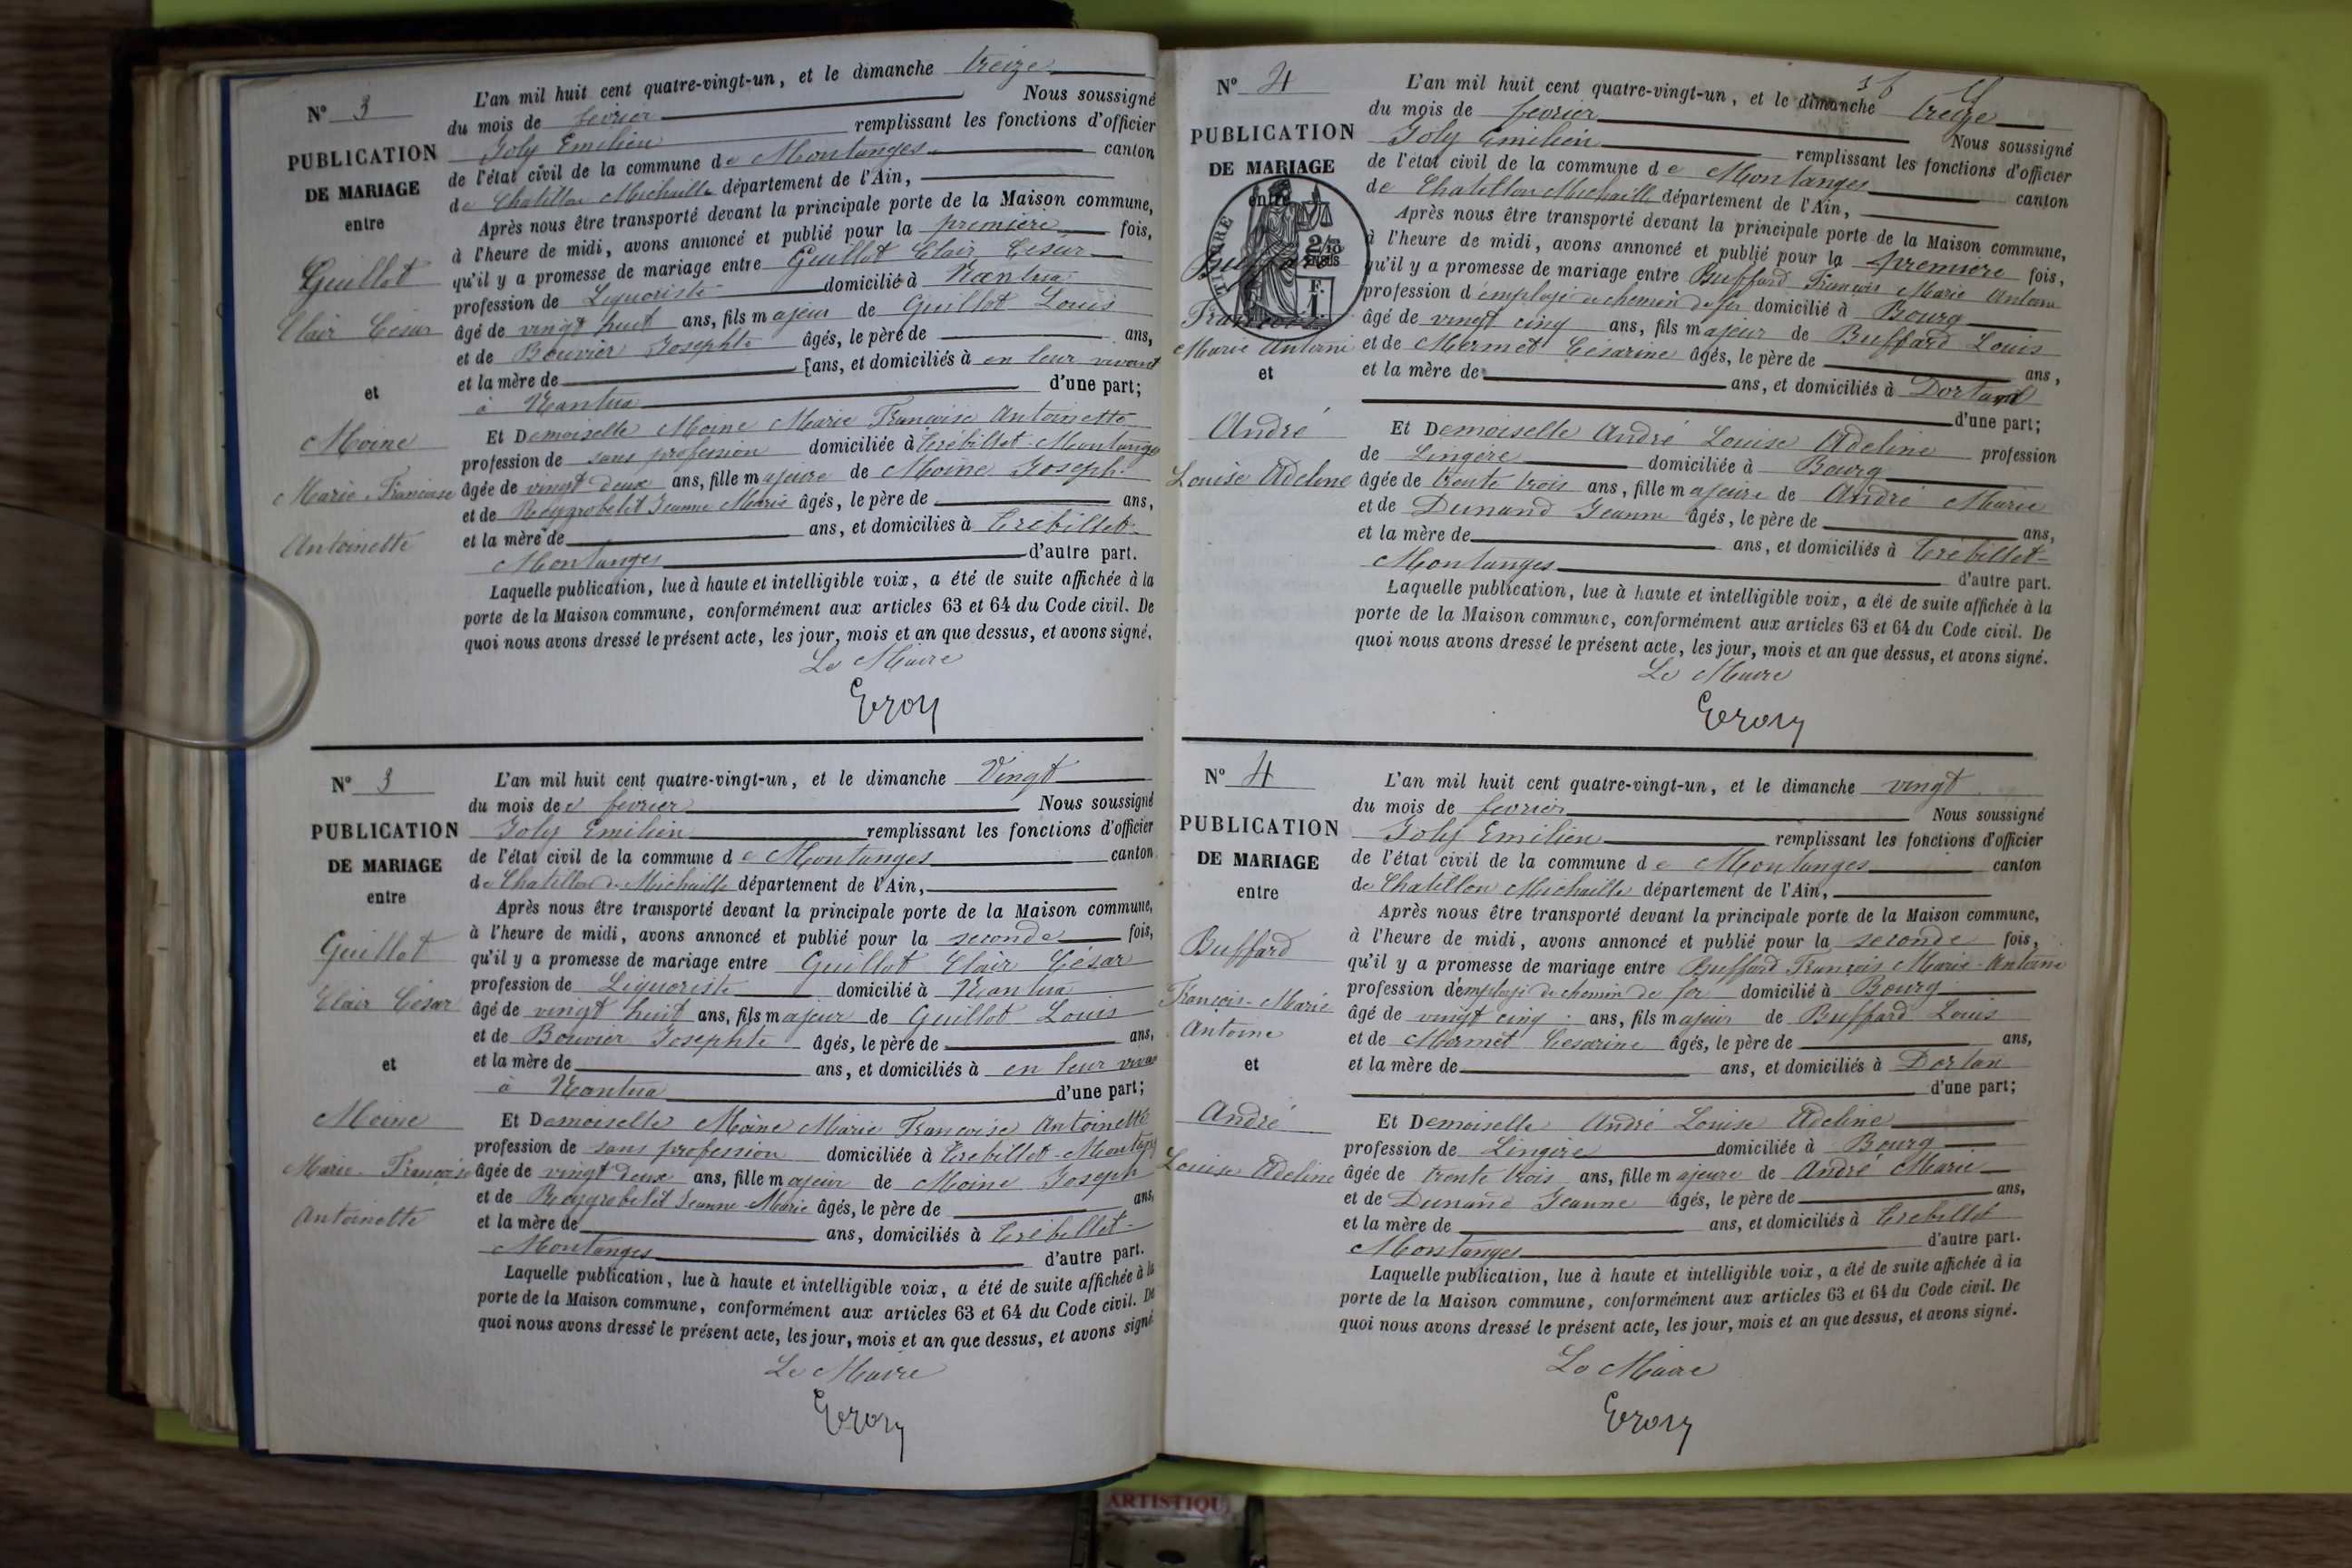 N° 3
PUBLICATION
DE MARIAGE
entre
Guillot
Clair César
et
Moine
Marie Francoise
Antoinette
L'an mil huit cent quatre-vingt-un, et le dimanche treize
du mois de fevrier Nous soussigné
Joly Emilien remplissant les fonctions d'officier
de l'état civil de la commune de Montanges canton
de Chatillon Michaille département de l'Ain,
Après nous être transporté devant la principale porte de la Maison commune,
à l'heure de midi, avons annoncé et publié pour la première fois,
qu'il y a promesse de mariage entre Guillot Clair César
profession de Liquoriste domicilié à Nantua
âgé de vingt huit ans, fils majeur de Guillot Louis
et de Bouvier Josephte âgés, le père de ans,
et la mère de ans, et domiciliés à en leur vivant
à Nantua d'une part;
Et Demoiselle Moine Marie Françoise Antoinette
profession de sans profession domiciliée à Trébillet-Montanges
âgée de vingt deux ans, fille majeure de Moine Joseph
et de Reygrobelet Jeanne Marie âgés, le père de ans,
et la mère de ans, et domiciliés à Trebillet-
Montanges d'autre part.
Laquelle publication, lue à haute et intelligible voix, a été de suite affichée à la
porte de la Maison commune, conformément aux articles 63 et 64 du Code civil. De
quoi nous avons dressé le présent acte, les jour, mois et an que dessus, et avons signé.
Le Maire
N° 3
PUBLICATION
DE MARIAGE
entre
Guillot
Clair César
et
Moine
Marie-Françoise
Antoinette
L'an mil huit cent quatre-vingt-un, et le dimanche Vingt
du mois de fevrier Nous soussigné
Joly Emilien remplissant les fonctions d'officier
de l'état civil de la commune de Montanges canton
de Chatillon de Michaille département de l'Ain,
Après nous être transporté devant la principale porte de la Maison commune,
à l'heure de midi, avons annoncé et publié pour la seconde fois,
qu'il y a promesse de mariage entre Guillot Clair César
profession de Liquoriste domicilié à Nantua
âgé de vingt huit ans, fils majeur de Guillot Louis
et de Bouvier Josephte âgés, le père de ans,
et la mère de ans, et domiciliés à en leur vivant
à Nantua d'une part;
Et Demoiselle Moine Marie Françoise Antoinette
profession de sans profession domiciliée à Trebillet-Montanges
âgée de vingt deux ans, fille majeur de Moine Joseph
et de Reygrobelet Jeanne-Marie âgés, le père de ans,
et la mère de ans, domiciliés à Trébillet-
Montanges d'autre part.
Laquelle publication, lue à haute et intelligible voix, a été de suite affichée à la
porte de la Maison commune, conformément aux articles 63 et 64 du Code civil. De
quoi nous avons dressé le présent acte, les jour, mois et an que dessus, et avons signé
Le Maire
N° 4
PUBLICATION
DE MARIAGE
entre
TIMBRE
2/10
EN SUS
F. 1
François
Marie Antoine
et
André
Louise Adeline
L'an mil huit cent quatre-vingt-un, et le dimanche treize
du mois de fevrier Nous soussigné
Joly Emilien remplissant les fonctions d'officier
de l'état civil de la commune de Montanges canton
de Chatillon Michaille département de l'Ain,
Après nous être transporté devant la principale porte de la Maison commune,
à l'heure de midi, avons annoncé et publié pour la première fois,
qu'il y a promesse de mariage entre Buffard François Marie Antoine
profession d'employé de chemin de fer domicilié à Bourg
âgé de vingt cinq ans, fils majeur de Buffard Louis
et de Mermet Césarine âgés, le père de ans,
et la mère de ans, et domiciliés à Dortan
d'une part;
Et Demoiselle André Louise Adeline profession
de Lingère domiciliée à Bourg
âgée de trente trois ans, fille majeure de André Marie
et de Dunand Jeanne âgés, le père de ans,
et la mère de ans, et domiciliés à Trébillet-
Montanges d'autre part.
Laquelle publication, lue à haute et intelligible voix, a été de suite affichée à la
porte de la Maison commune, conformément aux articles 63 et 64 du Code civil. De
quoi nous avons dressé le présent acte, les jour, mois et an que dessus, et avons signé.
Le Maire
N° 4
PUBLICATION
DE MARIAGE
entre
Buffard
François-Marie
Antoine
et
André
Louise Adeline
L'an mil huit cent quatre-vingt-un, et le dimanche vingt
du mois de fevrier Nous soussigné
Joly Emilien remplissant les fonctions d'officier
de l'état civil de la commune de Montanges canton
de Chatillon Michaille département de l'Ain,
Après nous être transporté devant la principale porte de la Maison commune,
à l'heure de midi, avons annoncé et publié pour la seconde fois,
qu'il y a promesse de mariage entre Buffard François Marie-Antoine
profession d'employé de chemin de fer domicilié à Bourg
âgé de vingt cinq ans, fils majeur de Buffard Louis
et de Mermet Cesarine âgés, le père de ans,
et la mère de ans, et domiciliés à Dortan
d'une part;
Et Demoiselle André Louise Adeline
profession de Lingère domiciliée à Bourg
âgée de trente trois ans, fille majeure de André Marie
et de Dunand Jeanne âgés, le père de ans,
et la mère de ans, et domiciliés à Trebillet
Montanges d'autre part.
Laquelle publication, lue à haute et intelligible voix, a été de suite affichée à la
porte de la Maison commune, conformément aux articles 63 et 64 du Code civil. De
quoi nous avons dressé le présent acte, les jour, mois et an que dessus, et avons signé.
Le Maire
ARTISTIQU